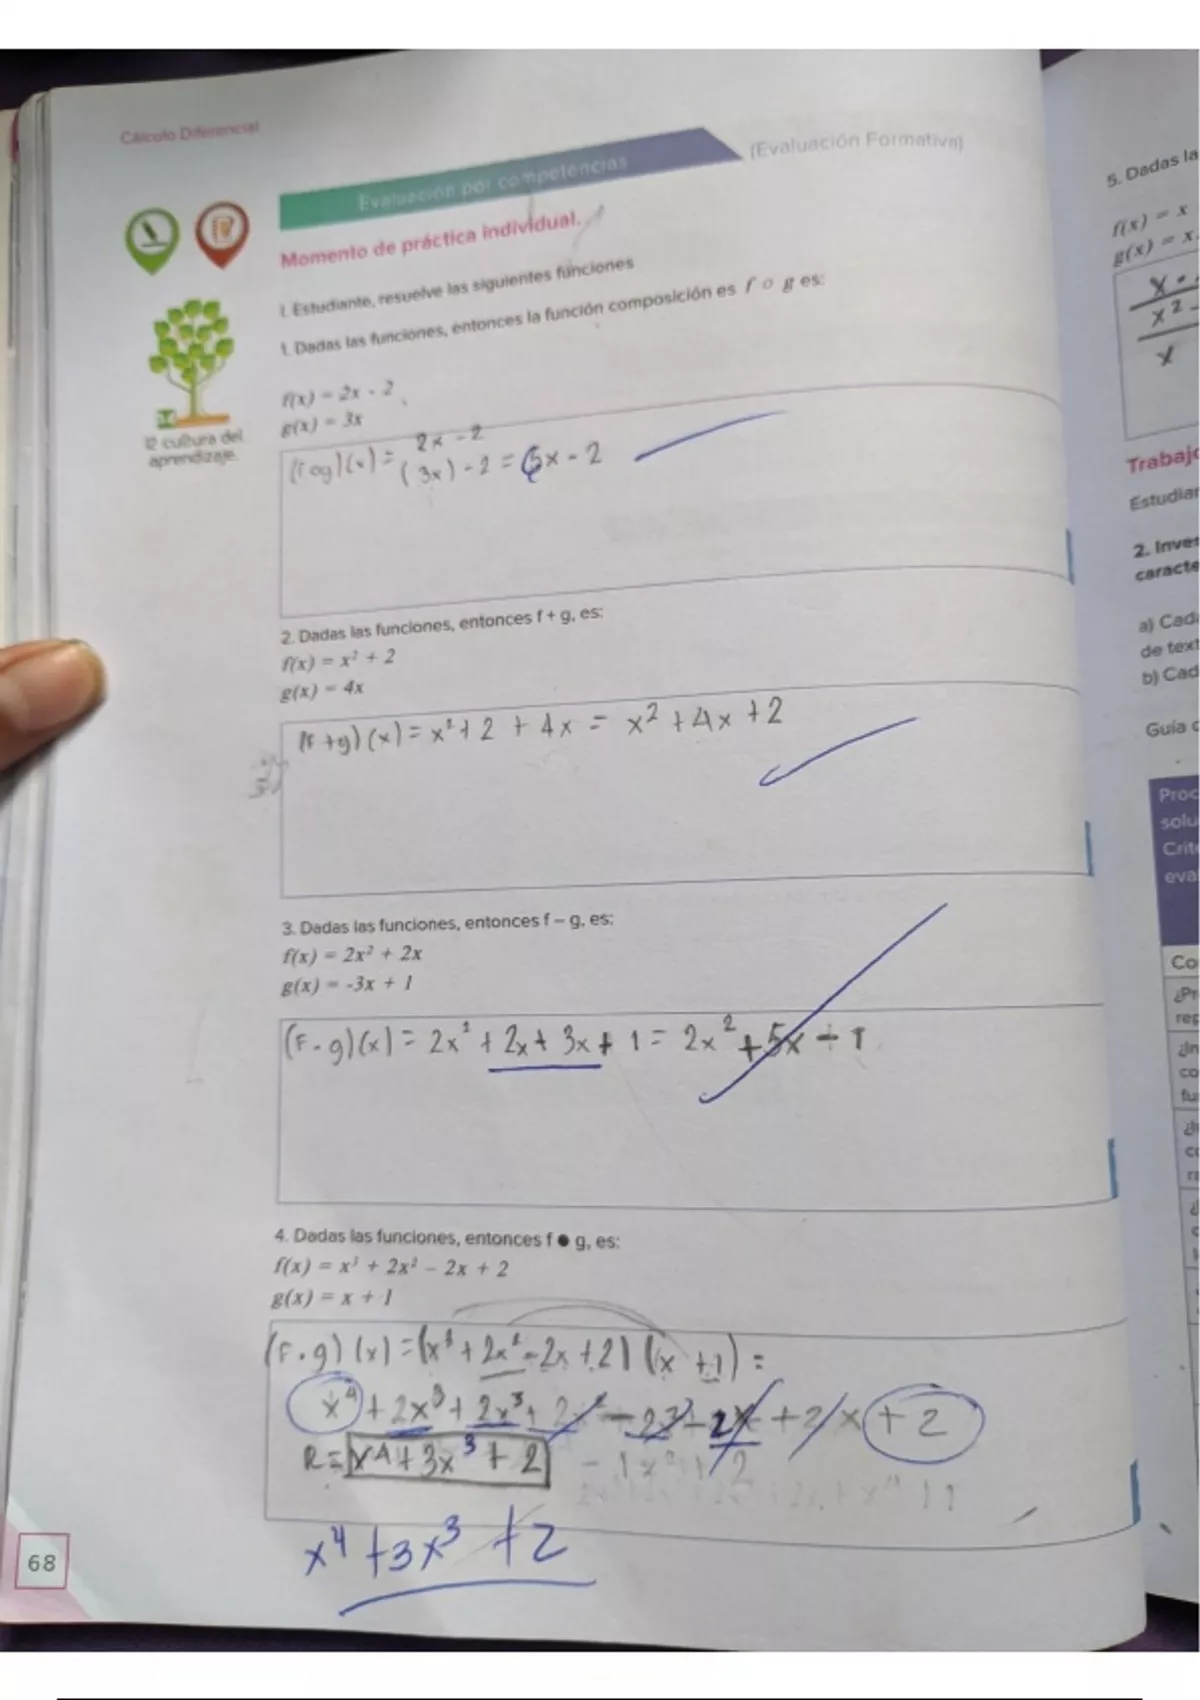 Cálculo Diferencial
Evaluación por competencias
(Evaluación Formativa)
Momento de práctica individual.
I. Estudiante, resuelve las siguientes funciones
1. Dadas las funciones, entonces la función composición es f o g es:
f(x) = 2x - 2
g(x) = 3x
12 cultura del
aprendizaje.
2x - 2
(Fog)(x) = (3x) - 2 = 6x - 2
2. Dadas las funciones, entonces f + g, es:
f(x) = x² + 2
g(x) = 4x
(F+g)(x) = x² + 2 + 4x = x² + 4x + 2
3. Dadas las funciones, entonces f – g, es:
f(x) = 2x² + 2x
g(x) = -3x + 1
(F-g)(x) = 2x² + 2x + 3x + 1 = 2x² + 5x - 1
4. Dadas las funciones, entonces f ● g, es:
f(x) = x³ + 2x² – 2x + 2
g(x) = x + 1
(F·g)(x) = (x³ + 2x² - 2x + 2)(x + 1) =
x⁴ + 2x³ + 2x³ + 2x
R = x⁴ + 3x³ + 2
x⁴ + 3x³ + 2
68
5. Dadas la
f(x) = x
g(x) = x
x
x² -
x
Trabajo
Estudian
2. Inves
caracte
a) Cada
de text
b) Cad
Guía d
Proc
solu
Crite
eva
Co
¿Pr
rep
¿In
co
fu